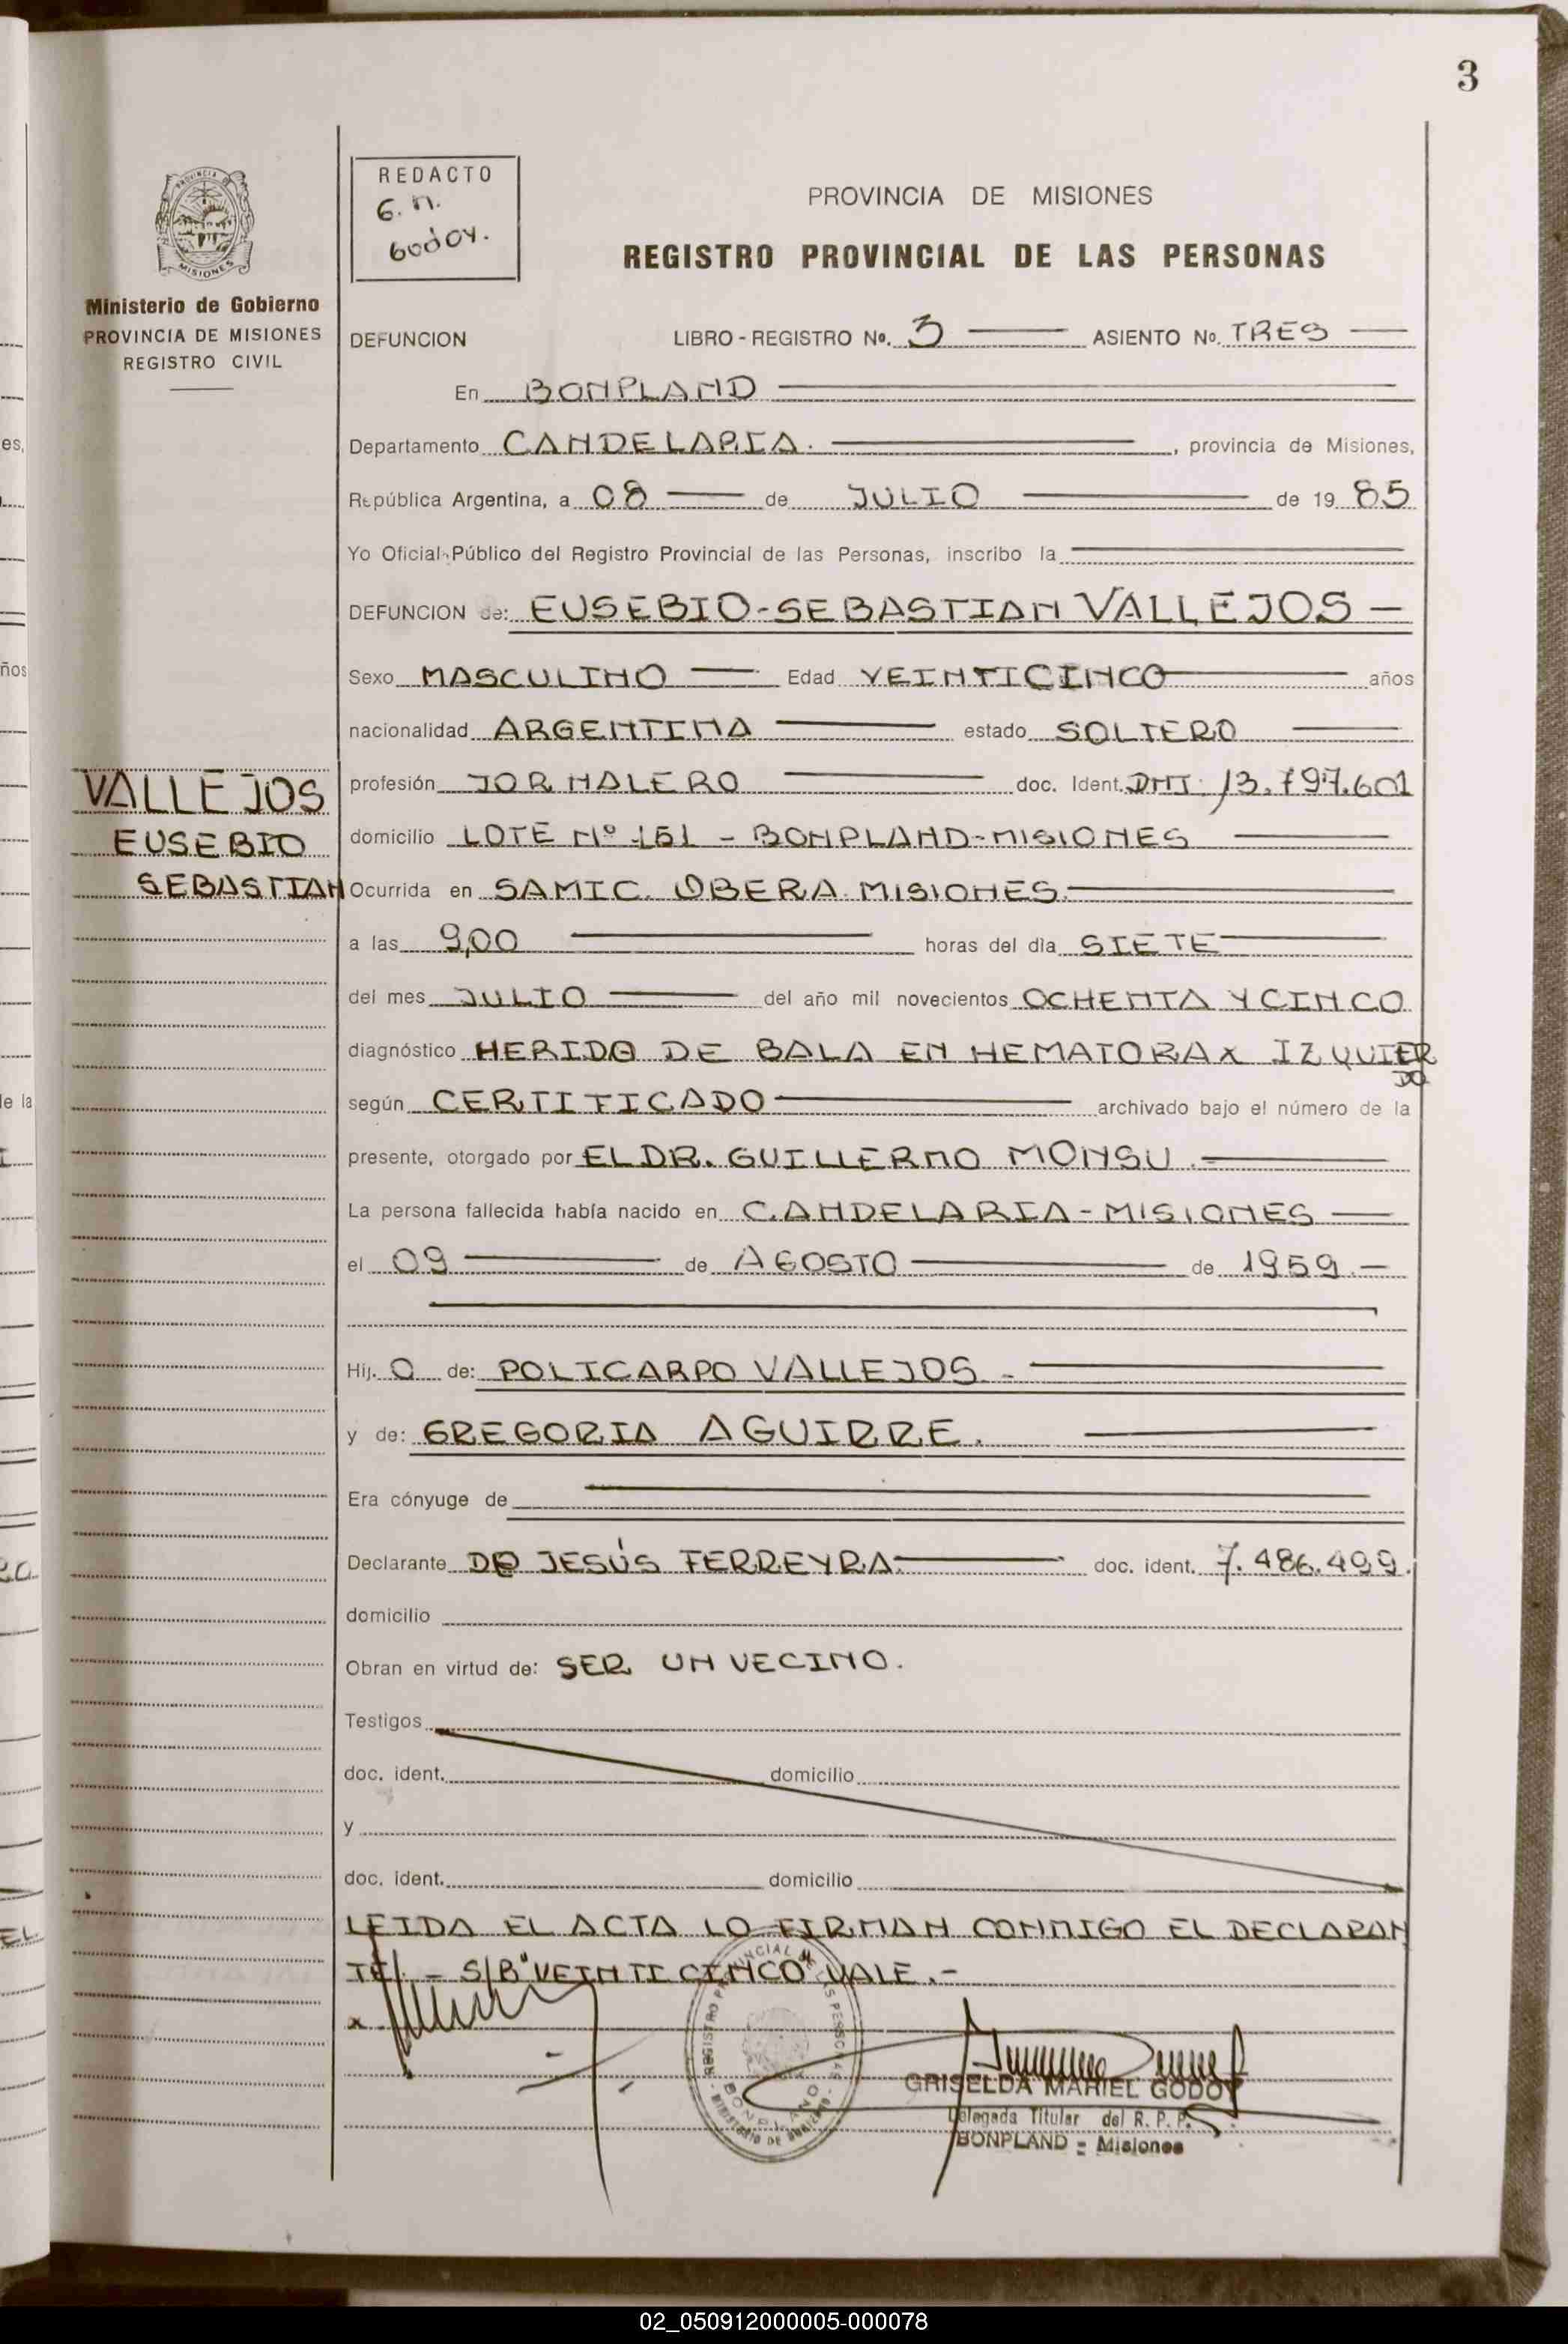 3
PROVINCIA DE MISIONES
Ministerio de Gobierno
PROVINCIA DE MISIONES
REGISTRO CIVIL
REDACTO
G. M.
Godoy.
PROVINCIA DE MISIONES
REGISTRO PROVINCIAL DE LAS PERSONAS
DEFUNCION LIBRO - REGISTRO No. 3 ASIENTO No. TRES
En BONPLAND
Departamento CANDELARIA. , provincia de Misiones,
República Argentina, a 08 de JULIO de 19 85
Yo Oficial Público del Registro Provincial de las Personas, inscribo la
DEFUNCION de: EUSEBIO-SEBASTIAN VALLEJOS —
Sexo MASCULINO Edad VEINTICINCO años
nacionalidad ARGENTINA estado SOLTERO
VALLEJOS
EUSEBIO
SEBASTIAN
profesión JORNALERO doc. Ident. DNI: 13.797.601
domicilio LOTE Nº 151 - BONPLAND-MISIONES
Ocurrida en SAMIC. OBERA. MISIONES.
a las 9,00 horas del día SIETE
del mes JULIO del año mil novecientos OCHENTA Y CINCO
diagnóstico HERIDO DE BALA EN HEMATORAX IZQUIER
DO
según CERTIFICADO archivado bajo el número de la
presente, otorgado por EL DR. GUILLERMO MONSU.-
La persona fallecida había nacido en CANDELARIA-MISIONES
el 09 de AGOSTO de 1959.-
Hij. O de: POLICARPO VALLEJOS.-
y de: GREGORIA AGUIRRE.
Era cónyuge de
Declarante DE JESÚS FERREYRA. doc. ident. 7.486.499.
domicilio
Obran en virtud de: SER UN VECINO.
Testigos
doc. ident. domicilio
y
doc. ident. domicilio
LEIDA EL ACTA LO FIRMAN CONMIGO EL DECLARAN
TE/.- S/B "VEINTICINCO" VALE.-
x
GRISELDA MARIEL GODOY
Delegada Titular del R. P. P.
BONPLAND - Misiones
02_050912000005-000078